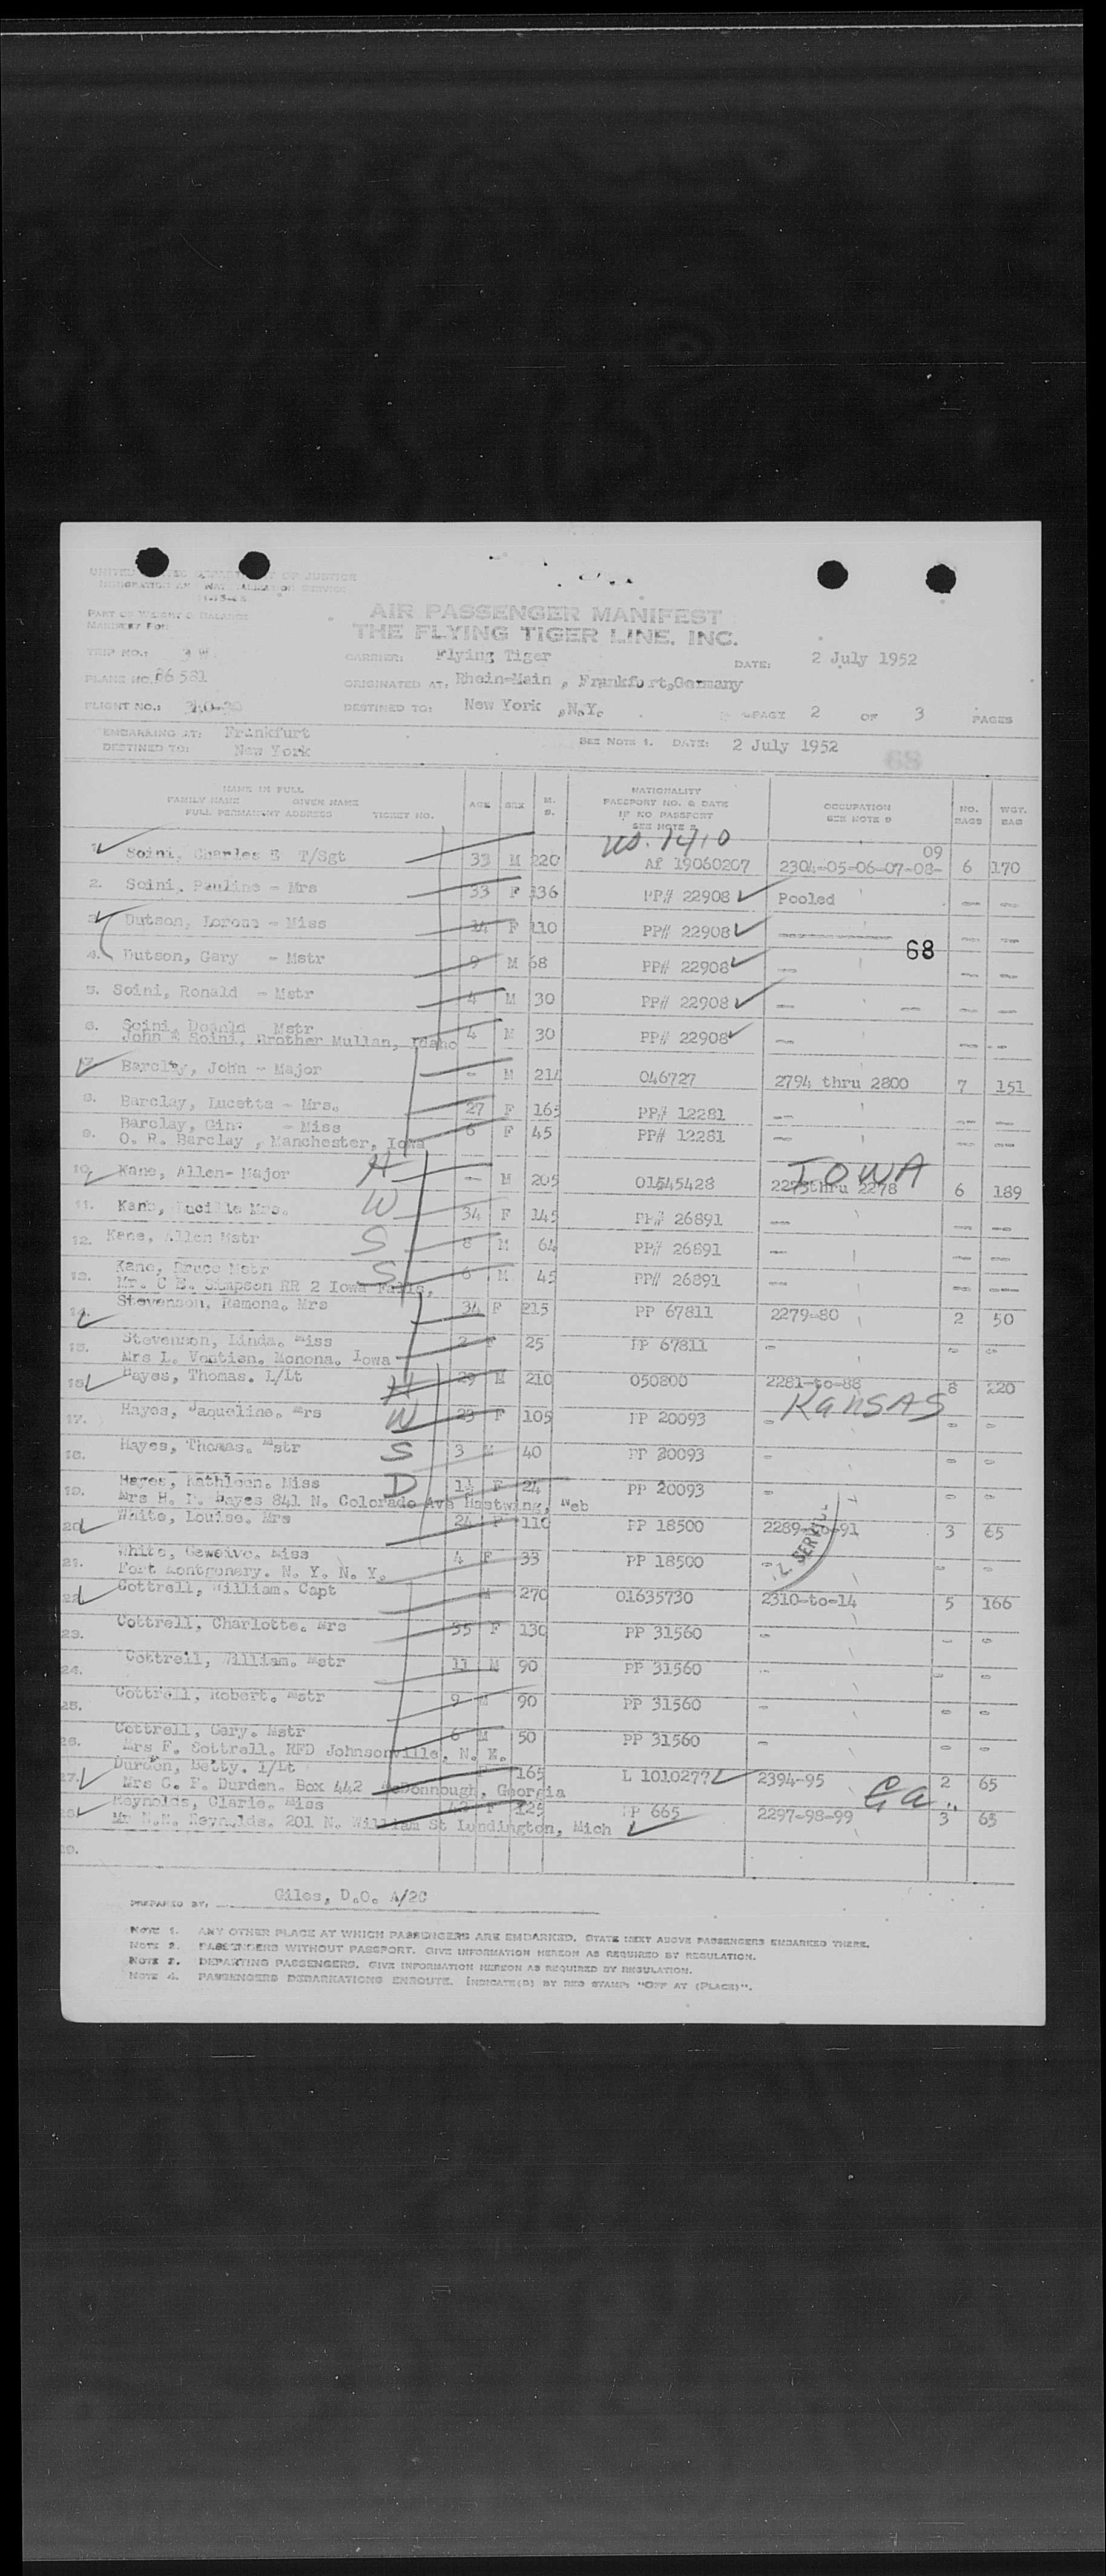 UNITED STATES DEPARTMENT OF JUSTICE
IMMIGRATION AND NATURALIZATION SERVICE
PART OF WEIGHT & BALANCE
MANIFEST FOR:
AIR PASSENGER MANIFEST
THE FLYING TIGER LINE, INC.
TRIP NO.: CARRIER: Flying Tiger DATE: 2 July 1952
PLANE NO. 86581 ORIGINATED AT: Rhein-Main , Frankfort,Germany
FLIGHT NO.: DESTINED TO: New York ,N.Y. PAGE 2 OF 3 PAGES
EMBARKING AT: Frankfurt SEE NOTE 1. DATE: 2 July 1952
DESTINED TO: New York
68
NAME IN FULL
FAMILY NAME GIVEN NAME
FULL PERMANENT ADDRESS TICKET NO. AGE SEX M. S. NATIONALITY PASSPORT NO. & DATE IF NO PASSPORT SEE NOTE 2 OCCUPATION SEE NOTE 3 NO. BAGS WGT. BAG
1. Soini, Charles E T/Sgt 33 M 220 US. 1410 Af 19060207 2304-05-06-07-08-09 6 170
2. Soini, Pauline - Mrs 33 F 136 PP# 22908 Pooled -- --
3. Dutson, Lorous - Miss 14 F 110 PP# 22908 -- --
68
4. Dutson, Gary - Mstr 9 M 68 PP# 22908 -- -- --
5. Soini, Ronald - Mstr 4 M 30 PP# 22908 -- -- --
6. Soini, Donald Mstr 4 M 30 PP# 22908 -- -- --
John E Soini, Brother Mullan, Idaho
7. Barclay, John - Major - M 214 046727 2794 thru 2800 7 151
8. Barclay, Lucetta - Mrs. 27 F 165 PP# 12281 -- -- --
9. Barclay, Gin - Miss 6 F 45 PP# 12281 -- -- --
O. R. Barclay , Manchester, Iowa
IOWA
10. Kane, Allen- Major H - M 205 01545428 2273thru 2278 6 189
11. Kane, Lucille Mrs. W 34 F 145 PP# 26891 -- -- --
12. Kane, Allen Mstr S 8 M 64 PP# 26891 -- -- --
13. Kane, Bruce Mstr S 6 M 45 PP# 26891 -- -- --
Mr. C E. Simpson RR 2 Iowa Falls,
14. Stevenson, Ramona. Mrs 34 F 215 PP 67811 2279-80 2 50
15. Stevenson, Linda. Miss 2 F 25 PP 67811 - - -
Mrs L. Ventien. Monona. Iowa
16. Hayes, Thomas. L/Lt H 29 M 210 050800 2281-to-88 8 220
KANSAS
17. Hayes, Jaqueline. Mrs W 23 F 105 PP 20093 - - -
18. Hayes, Thomas. Mstr S 3 M 40 PP 20093 - - -
19. Hayes, Kathleen. Miss D 1½ F 24 PP 20093 - - -
Mrs H. P. Hayes 841 N. Colorado Ave Hastwing, Neb
20. White, Louise. Mrs 24 F 110 PP 18500 2289-to-91 3 65
21. White, Geweive. Miss 4 F 33 PP 18500 - - -
Fort Montgomery. N. Y. N. Y.
22. Cottrell, William. Capt M 270 01635730 2310-to-14 5 166
23. Cottrell, Charlotte. Mrs 35 F 130 PP 31560 - - -
24. Cottrell, William. Mstr 11 M 90 PP 31560 - - -
25. Cottrell, Robert. Mstr 9 M 90 PP 31560 - - -
26. Cottrell, Gary. Mstr 6 M 50 PP 31560 - - -
Mrs F. Cottrell. RFD Johnsonville, N. Y.
27. Durden, Betty. 1/Lt F 165 L 1010277 2394-95 2 65
Mrs C. F. Durden. Box 442 McDonnough, Georgia
Ga.
28. Reynolds, Clarie. Miss 42 F 125 PP 665 2297-98-99 3 65
Mr N.N. Reynolds. 201 N. William St Lundington, Mich
29.
PREPARED BY: Giles, D.O. A/2C
NOTE 1. ANY OTHER PLACE AT WHICH PASSENGERS ARE EMBARKED. STATE NEXT ABOVE PASSENGERS EMBARKED THERE.
NOTE 2. PASSENGERS WITHOUT PASSPORT. GIVE INFORMATION HEREON AS REQUIRED BY REGULATION.
NOTE 3. DEPARTING PASSENGERS. GIVE INFORMATION HEREON AS REQUIRED BY REGULATION.
NOTE 4. PASSENGERS DEBARKATIONS ENROUTE. INDICATE(D) BY RED STAMP: "OFF AT (PLACE)".